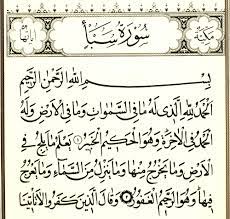 سُورَةُ سَبَأٍ
بِسْمِ اللَّهِ الرَّحْمَٰنِ الرَّحِيمِ
الْحَمْدُ لِلَّهِ الَّذِي لَهُ مَا فِي السَّمَٰوَاتِ وَمَا فِي الْأَرْضِ وَلَهُ
الْحَمْدُ فِي الْآخِرَةِ وَهُوَ الْحَكِيمُ الْخَبِيرُ ١ يَعْلَمُ مَا يَلِجُ فِي
الْأَرْضِ وَمَا يَخْرُجُ مِنْهَا وَمَا يَنْزِلُ مِنَ السَّمَاءِ وَمَا يَعْرُجُ
فِيهَا وَهُوَ الرَّحِيمُ الْغَفُورُ ٢ وَقَالَ الَّذِينَ كَفَرُوا لَا تَأْتِينَا